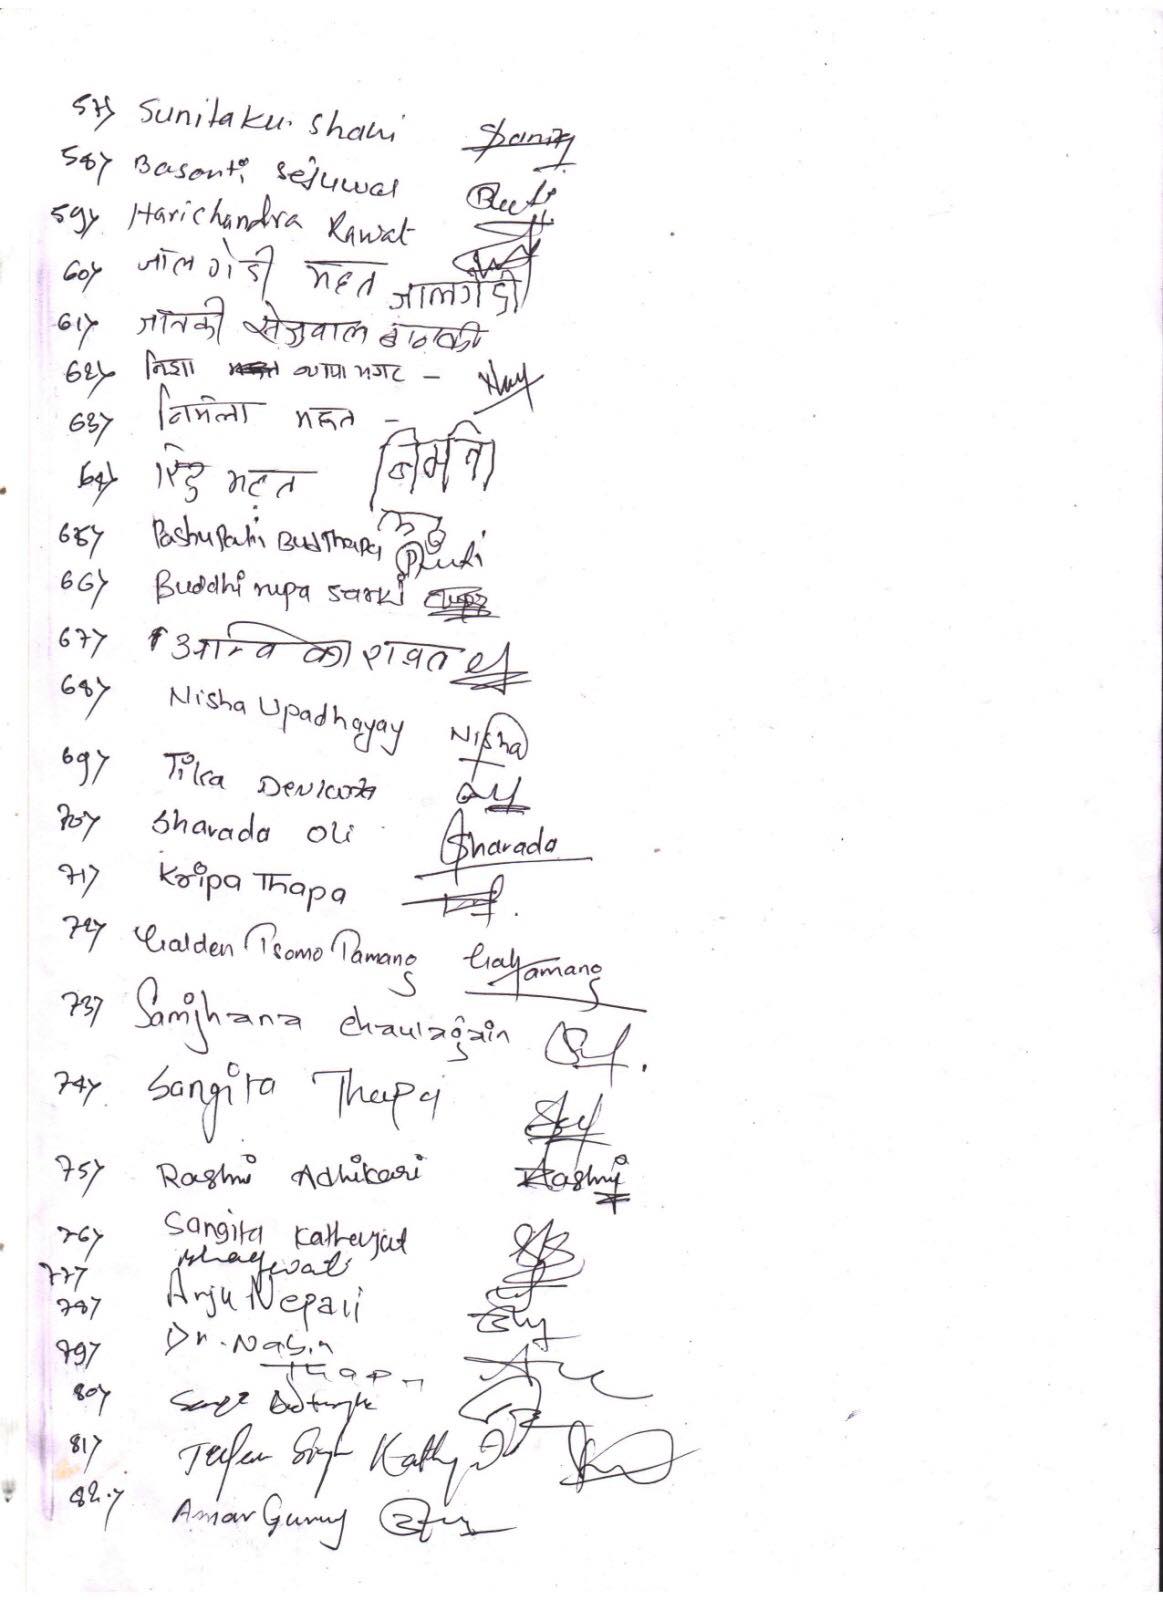 57) Sunita ku. Shahi
58) Basanti Sejuwal
59) Harichandra Rawat
60) जालगेडी महत जालगेडी
61) जानकी सेजुवाल जानकी
62) निशा थापा मगर –
63) निर्मला महत –
64) महत
65) Pashupati BudThapa
66) Buddhi rupa sarki
67) अम्बिका रावत
68) Nisha Upadhayay Nisha
69) Tika Devkota
70) Sharada Oli Sharada
71) Kripa Thapa
72) Galden Tsomo Tamang Gal Tamang
73) Samjhana Chaulagain
74) Sangita Thapa
75) Rashmi Adhikari Rashmi
76) Sangita Kathayat
77) Bhagwati
78) Anju Nepali
79) Dr. Nabin
Thapa
80)
81) Singh
82) Amar Gurung